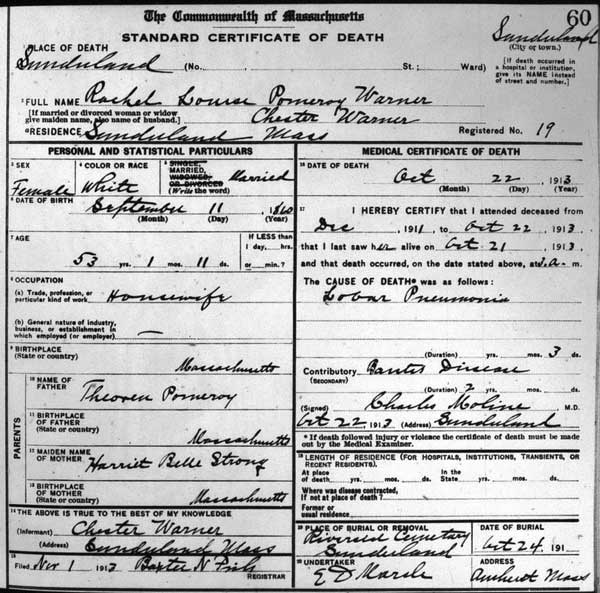 The Commonwealth of Massachusetts
60
STANDARD CERTIFICATE OF DEATH
Sunderland
(City or town.)
PLACE OF DEATH
Sunderland (No. St.; Ward)
[If death occurred in
a hospital or institution,
give its NAME instead
of street and number.]
2 FULL NAME Rachel Louise Pomeroy Warner
[If married or divorced woman or widow
give maiden name, also name of husband.] Chester Warner
RESIDENCE Sunderland Mass Registered No. 19
PERSONAL AND STATISTICAL PARTICULARS
3 SEX
Female
4 COLOR OR RACE
White
5 SINGLE,
MARRIED,
WIDOWED,
OR DIVORCED
(Write the word)
Married
6 DATE OF BIRTH
September 11, 1860
(Month) (Day) (Year)
7 AGE
53 yrs. 1 mos. 11 ds.
If LESS than
1 day, hrs.
or min.?
8 OCCUPATION
(a) Trade, profession, or
particular kind of work Housewife
(b) General nature of industry,
business, or establishment in
which employed (or employer) —
9 BIRTHPLACE
(State or country)
Massachusetts
PARENTS
10 NAME OF
FATHER
Pomeroy
11 BIRTHPLACE
OF FATHER
(State or country)
Massachusetts
12 MAIDEN NAME
OF MOTHER
Harriet Belle Strong
13 BIRTHPLACE
OF MOTHER
(State or country)
Massachusetts
14 THE ABOVE IS TRUE TO THE BEST OF MY KNOWLEDGE
(Informant) Chester Warner
(Address) Sunderland Mass
15
Filed Nov 1 191 Baxter N Fish
REGISTRAR
MEDICAL CERTIFICATE OF DEATH
16 DATE OF DEATH
Oct 22, 1913
(Month) (Day) (Year)
17 I HEREBY CERTIFY that I attended deceased from
Dec, 1911, to Oct 22, 1913
that I last saw her alive on Oct 21, 1913,
and that death occurred, on the date stated above, at a. m.
The CAUSE OF DEATH* was as follows:
Lobar Pneumonia
(Duration) yrs. mos. 3 ds.
Contributory Bantis Disease
(SECONDARY)
(Duration) 2 yrs. mos. ds.
(Signed) Charles Moline M.D.
Oct 22, 1913 (Address) Sunderland
* If death followed injury or violence the certificate of death must be made
out by the Medical Examiner.
18 LENGTH OF RESIDENCE (FOR HOSPITALS, INSTITUTIONS, TRANSIENTS, OR
RECENT RESIDENTS).
At place In the
of death yrs. mos. ds. State yrs. mos. ds.
Where was disease contracted,
if not at place of death?
Former or
usual residence
19 PLACE OF BURIAL OR REMOVAL
Riverside Cemetary
Sunderland
DATE OF BURIAL
Oct 24, 191
20 UNDERTAKER
E D Marsh
ADDRESS
Amherst Mass